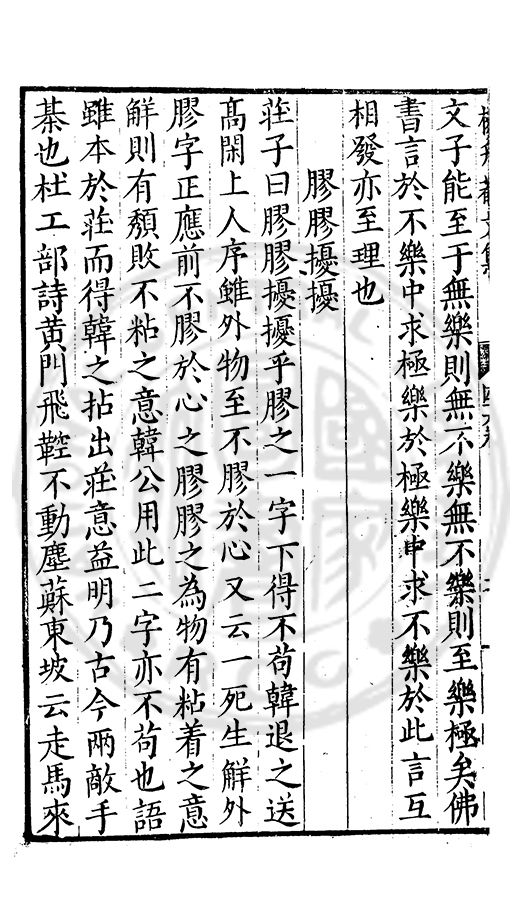 文子能至于無樂則無不樂無不樂則至樂極矣佛
書言於不樂中求極樂於極樂中求不樂於此言互
相發亦至理也
膠膠擾擾
莊子曰膠膠擾擾乎膠之一字下得不苟韓退之送
高閑上人序雖外物至不膠於心又云一死生解外
膠字正應前不膠於心之膠膠之為物有粘着之意
解則有頹敗不粘之意韓公用此二字亦不苟也語
雖本於莊而得韓之拈出莊意益明乃古今兩敵手
棊也杜工部詩黄門飛鞚不動塵蘇東坡云走馬來